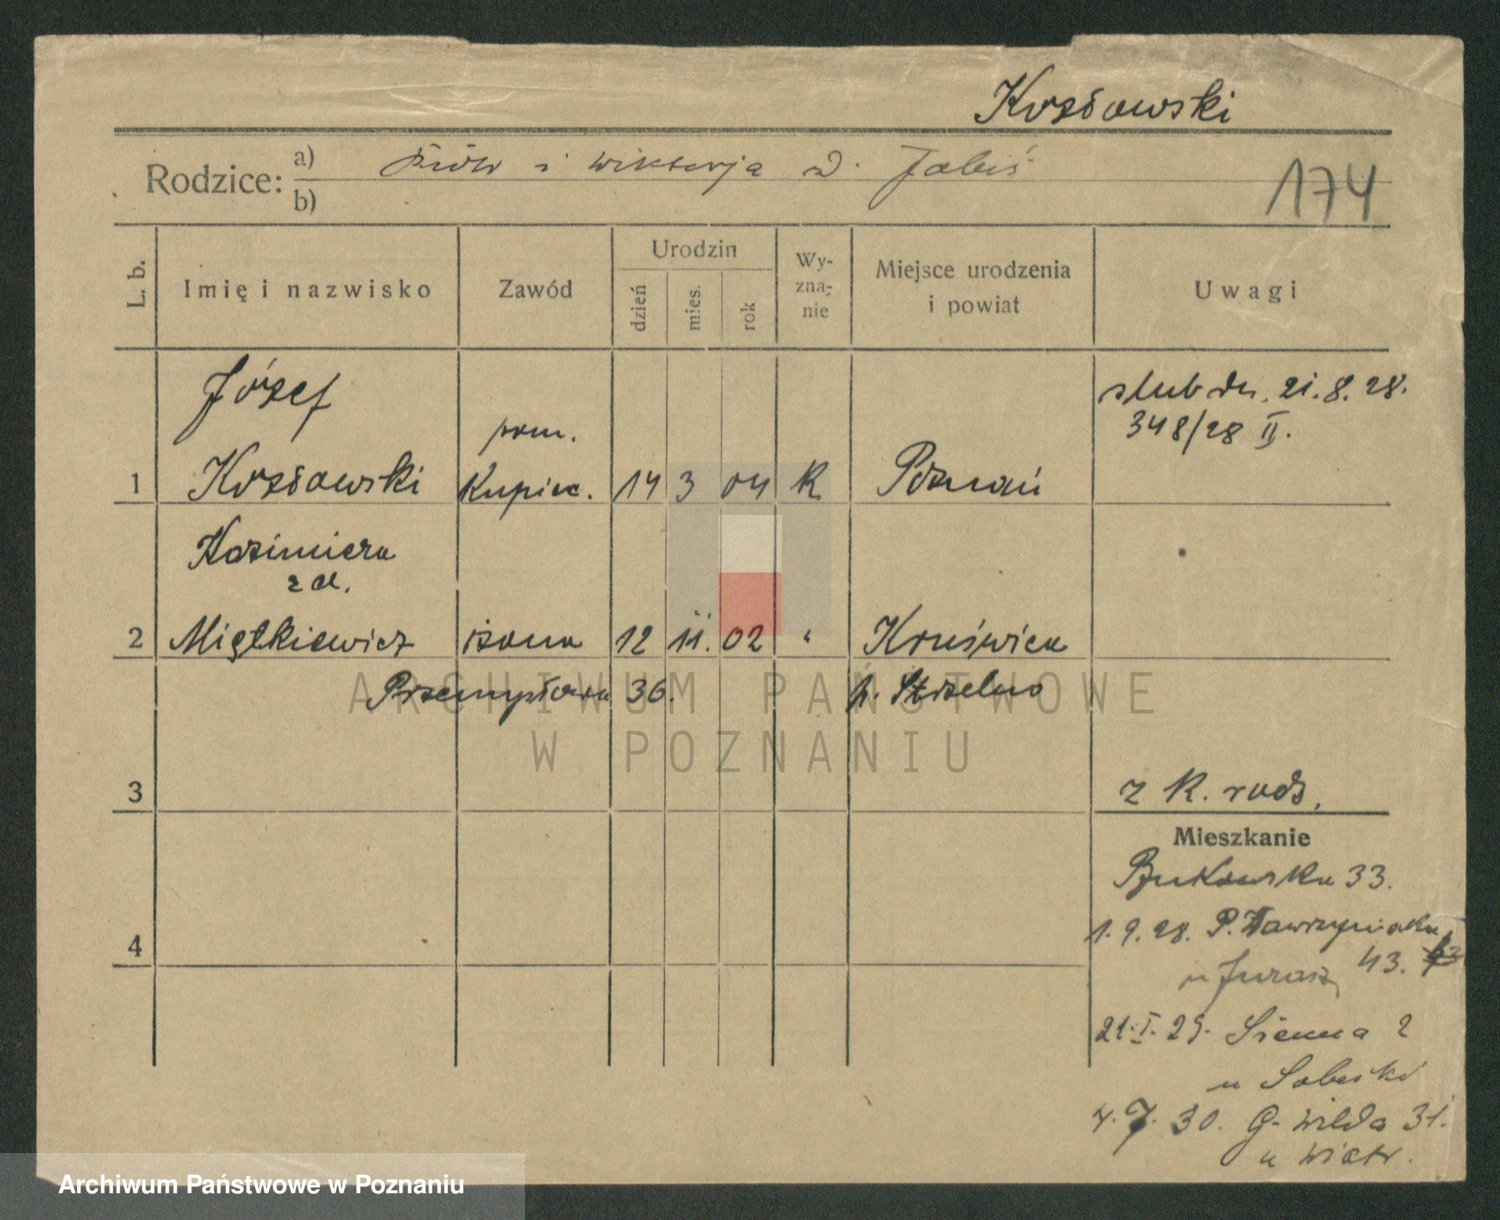 Kozłowski
Rodzice: a) Piotr i Wiktorja d. Jabś
b)
174
L. b.
Imię i nazwisko
Zawód
Urodzin
dzień
mies.
rok
Wy-
zna-
nie
Miejsce urodzenia
i powiat
Uwagi
Józef
pom.
1 Kozłowski Kupiec. 14 3 04 K Poznań
ślub dn. 21.8.28.
348/28 II.
Kazimiera
z d.
2 Miętkiewicz żona 12 11. 02 " Kruświca
Przemysłowa 36. p. Strzelno
3
z K. rodz.
Mieszkanie
Bukowska 33.
4
1.9.28. P. Wawrzyniaka
43.
u Jurasz
21.I.29. Sienna 2
u Sobeski
4.7.30. G. Wilda 31.
u Wiatr.
ARCHIWUM PAŃSTWOWE
W POZNANIU
Archiwum Państwowe w Poznaniu